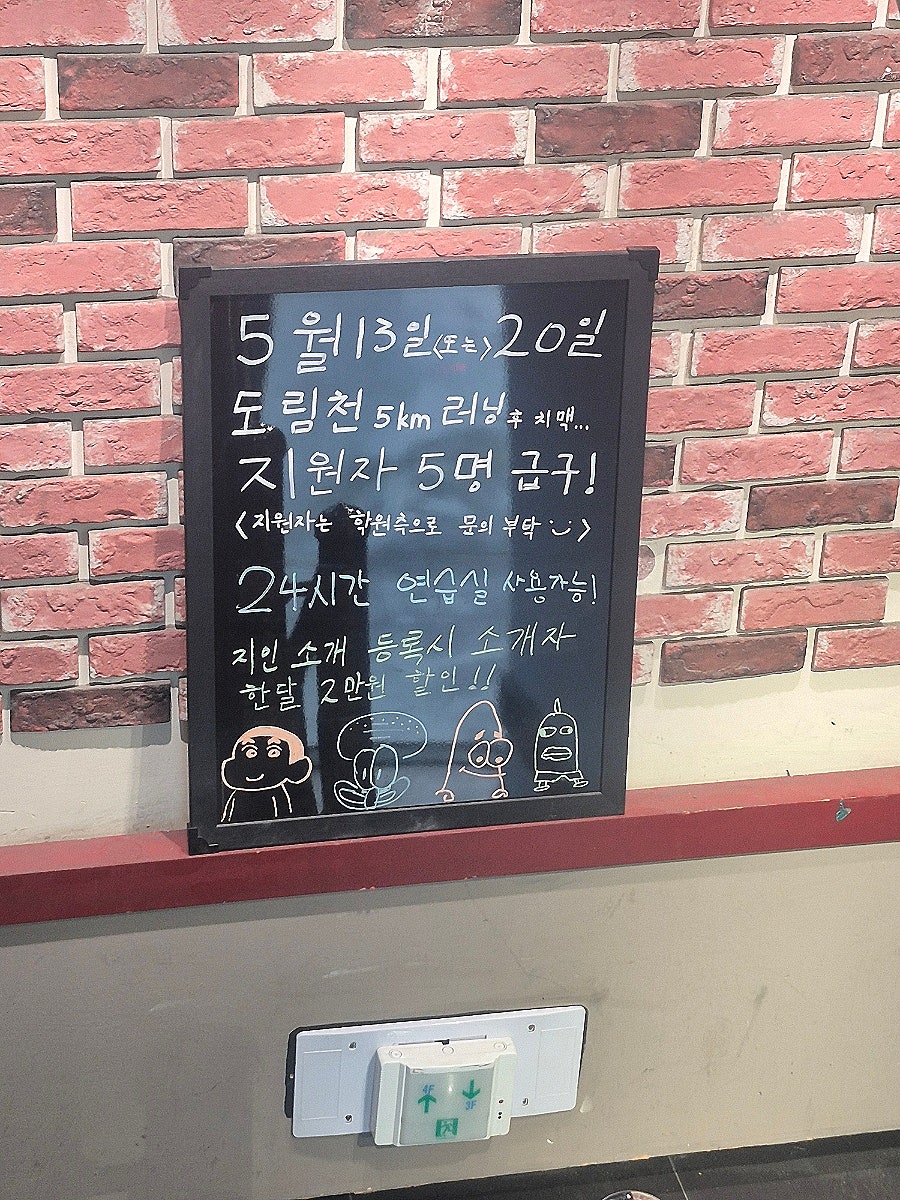 5월 13일 <또는> 20일
도림천 5km 러닝 후 치맥...
지원자 5명 급구!
<지원자는 학원측으로 문의 부탁 :-)>
24시간 연습실 사용가능!
지인 소개 등록시 소개자
한달 2만원 할인!!
4F 3F